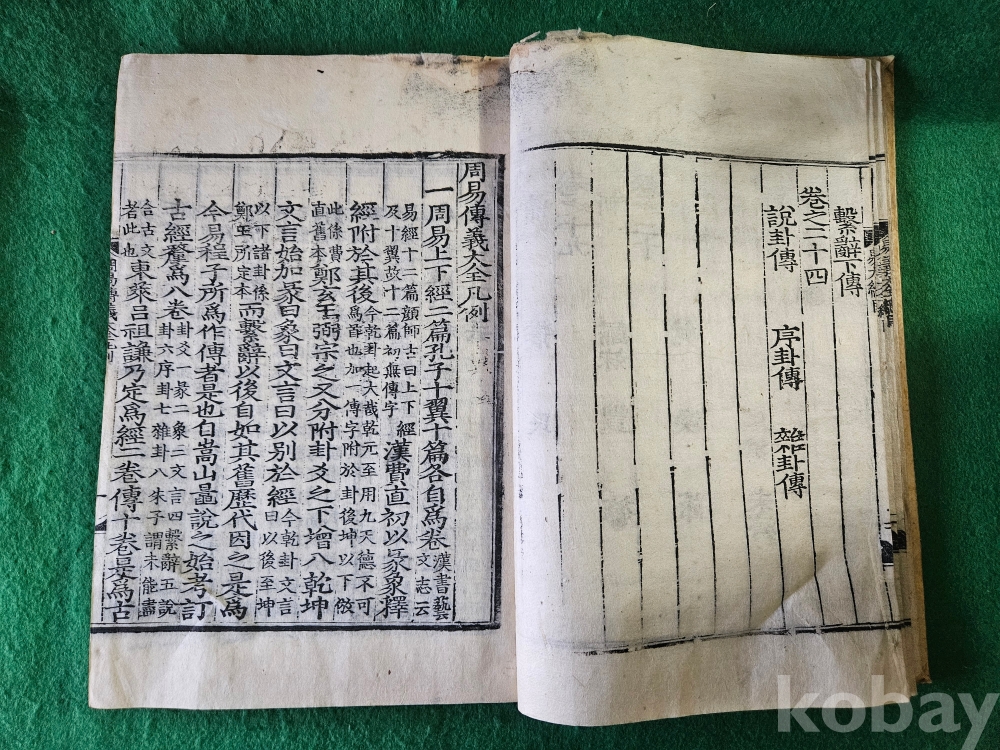 繫辭下傳
卷之二十四
說卦傳 序卦傳 雜卦傳
二
周易傳義大全凡例
一周易上下經二篇孔子十翼十篇各自爲卷
漢書藝
文志云
易經十二篇顔師古曰上下經
及十翼故十二篇初無傳字
漢費直初以彖象釋
經附於其後
今乾卦走大哉乾元至用九天德不可
爲首也加一傳字附於卦後坤以下倣
此係費
直舊本
鄭玄王弼宗之又分附卦爻之下增入乾坤
文言始加彖曰象曰文言曰以別於經
今乾卦文言
曰以後至坤
以下諸卦係
鄭王所定本
而繫辭以後自如其舊歷代因之是爲
今易程子所爲作傳者是也自嵩山晁說之始考訂
古經釐爲八卷
卦爻一彖二象三文言四繫辭五說
卦六序卦七雜卦八朱子謂未能盡
合古文
者此也
東萊呂祖謙乃定爲經二卷傳十卷是爲古
kobay